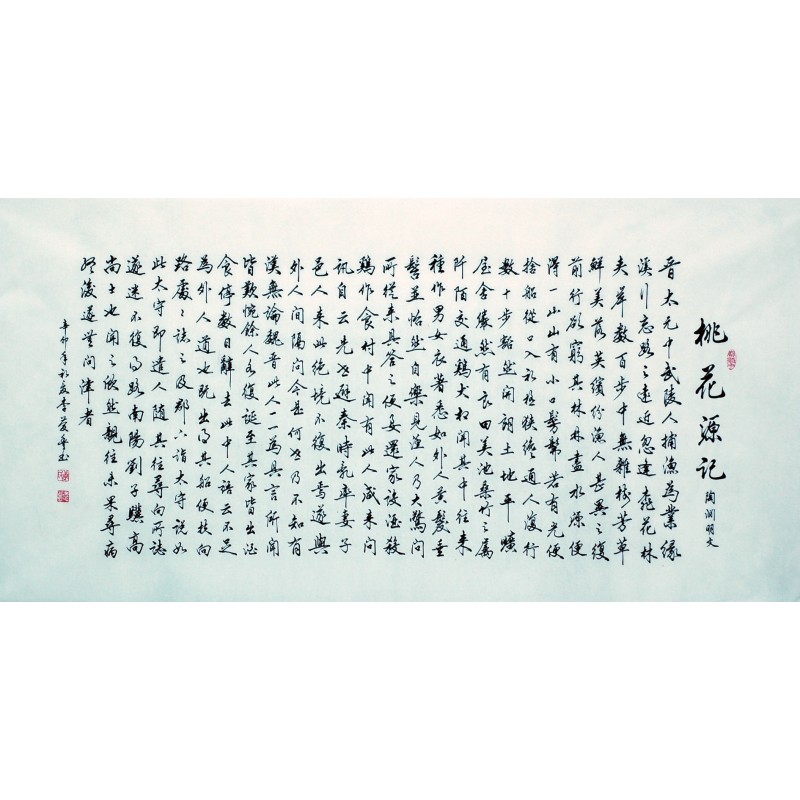 桃花源记
陶渊明文
晋太元中武陵人捕漁為業缘
溪行忘路之遠近忽逢桃花林
夹岸数百步中無雜樹芳草
鮮美落英缤纷漁人甚異之復
前行欲窮其林林盡水源便
得一山山有小口髣髴若有光便
捨船從口入初極狭纔通人復行
数十步豁然開朗土地平曠
屋舍儼然有良田美池桑竹之属
阡陌交通鶏犬相聞其中往来
種作男女衣著悉如外人黄髮垂
髫並怡然自樂見漁人乃大驚問
所從来具答之便要還家設酒殺
鶏作食村中聞有此人咸来問
訊自云先世避秦時亂率妻子
邑人来此绝境不復出焉遂與
外人間隔問今是何世乃不知有
漢無論魏晋此人一一為具言所聞
皆歎惋餘人各復誕至其家皆出酒
食停数日辭去此中人語云不足
為外人道也既出得其船便扶向
路處々誌之及郡下詣太守說如
此太守即遣人随其往尋向所誌
遂迷不復得路南陽劉子驥高
尚士也聞之欣然親往未果尋病
终後遂無問津者
辛卯年初夏李愛華书